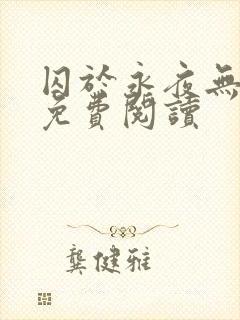 囚於永夜無
免費閱讀
龔健雅